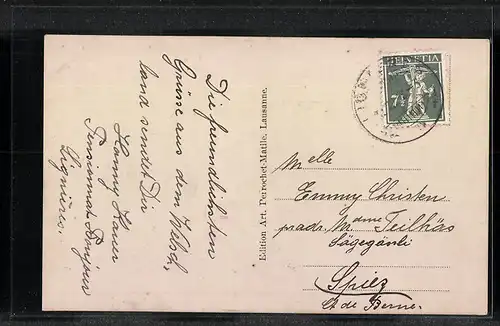 Die freundlichsten
Grüsse aus dem Welsch-
land sendet Dir
Hanny Hauer
Pensionnat Bonjour
Lignières.
Edition Art. Perrochet-Matile, Lausanne.
HELVETIA
7½
Melle
Emmy Christen
padr. Mdme Teilhäs
Sägegässli
Spiez
Ct. de Berne.